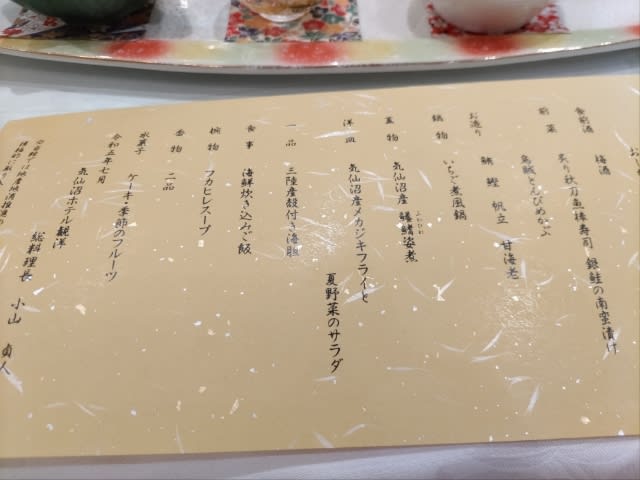 お
食前酒　梅酒
前菜　炙り秋刀魚棒寿司　銀鮭の南蛮漬け
烏賊とんびめかぶ
お造り　鮪　鰹　帆立　甘海老
鍋物　いちご煮風鍋
蓋物　気仙沼産　鱶鰭姿煮
ふかひれ
洋皿　気仙沼産メカジキフライと
夏野菜のサラダ
一品　三陸産殻付き海胆
食事　海鮮炊き込みご飯
椀物　フカヒレスープ
香物　二品
水菓子　ケーキ・季節のフルーツ
令和五年七月
気仙沼ホテル観洋
総料理長　小山　貞人